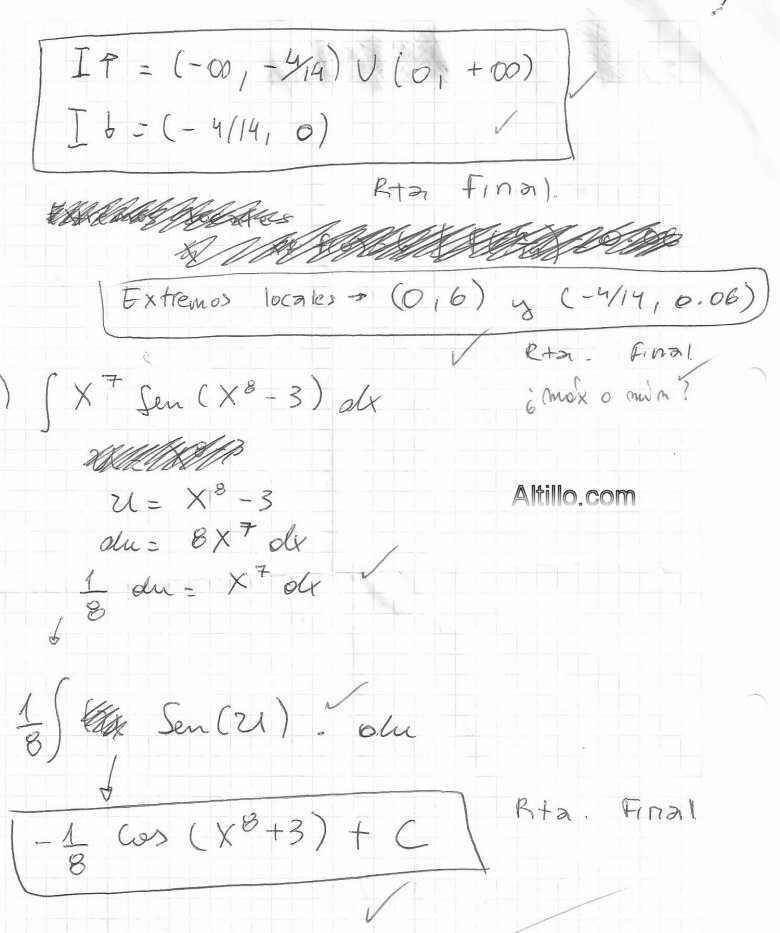 I↑ = (-∞, -4/14) ∪ (0, +∞)
I↓ = (-4/14, 0)
Rta Final.
Extremos locales → (0, 6) y (-4/14, 0.06)
Rta. Final
¿máx o mín?
) ∫ X⁷ Sen (X⁸ - 3) dx
u = X⁸ - 3
Altillo.com
du = 8X⁷ dx
1/8 du = X⁷ dx
↓
1/8 ∫ Sen(u) . du
↓
Rta. Final
-1/8 cos (X⁸+3) + C